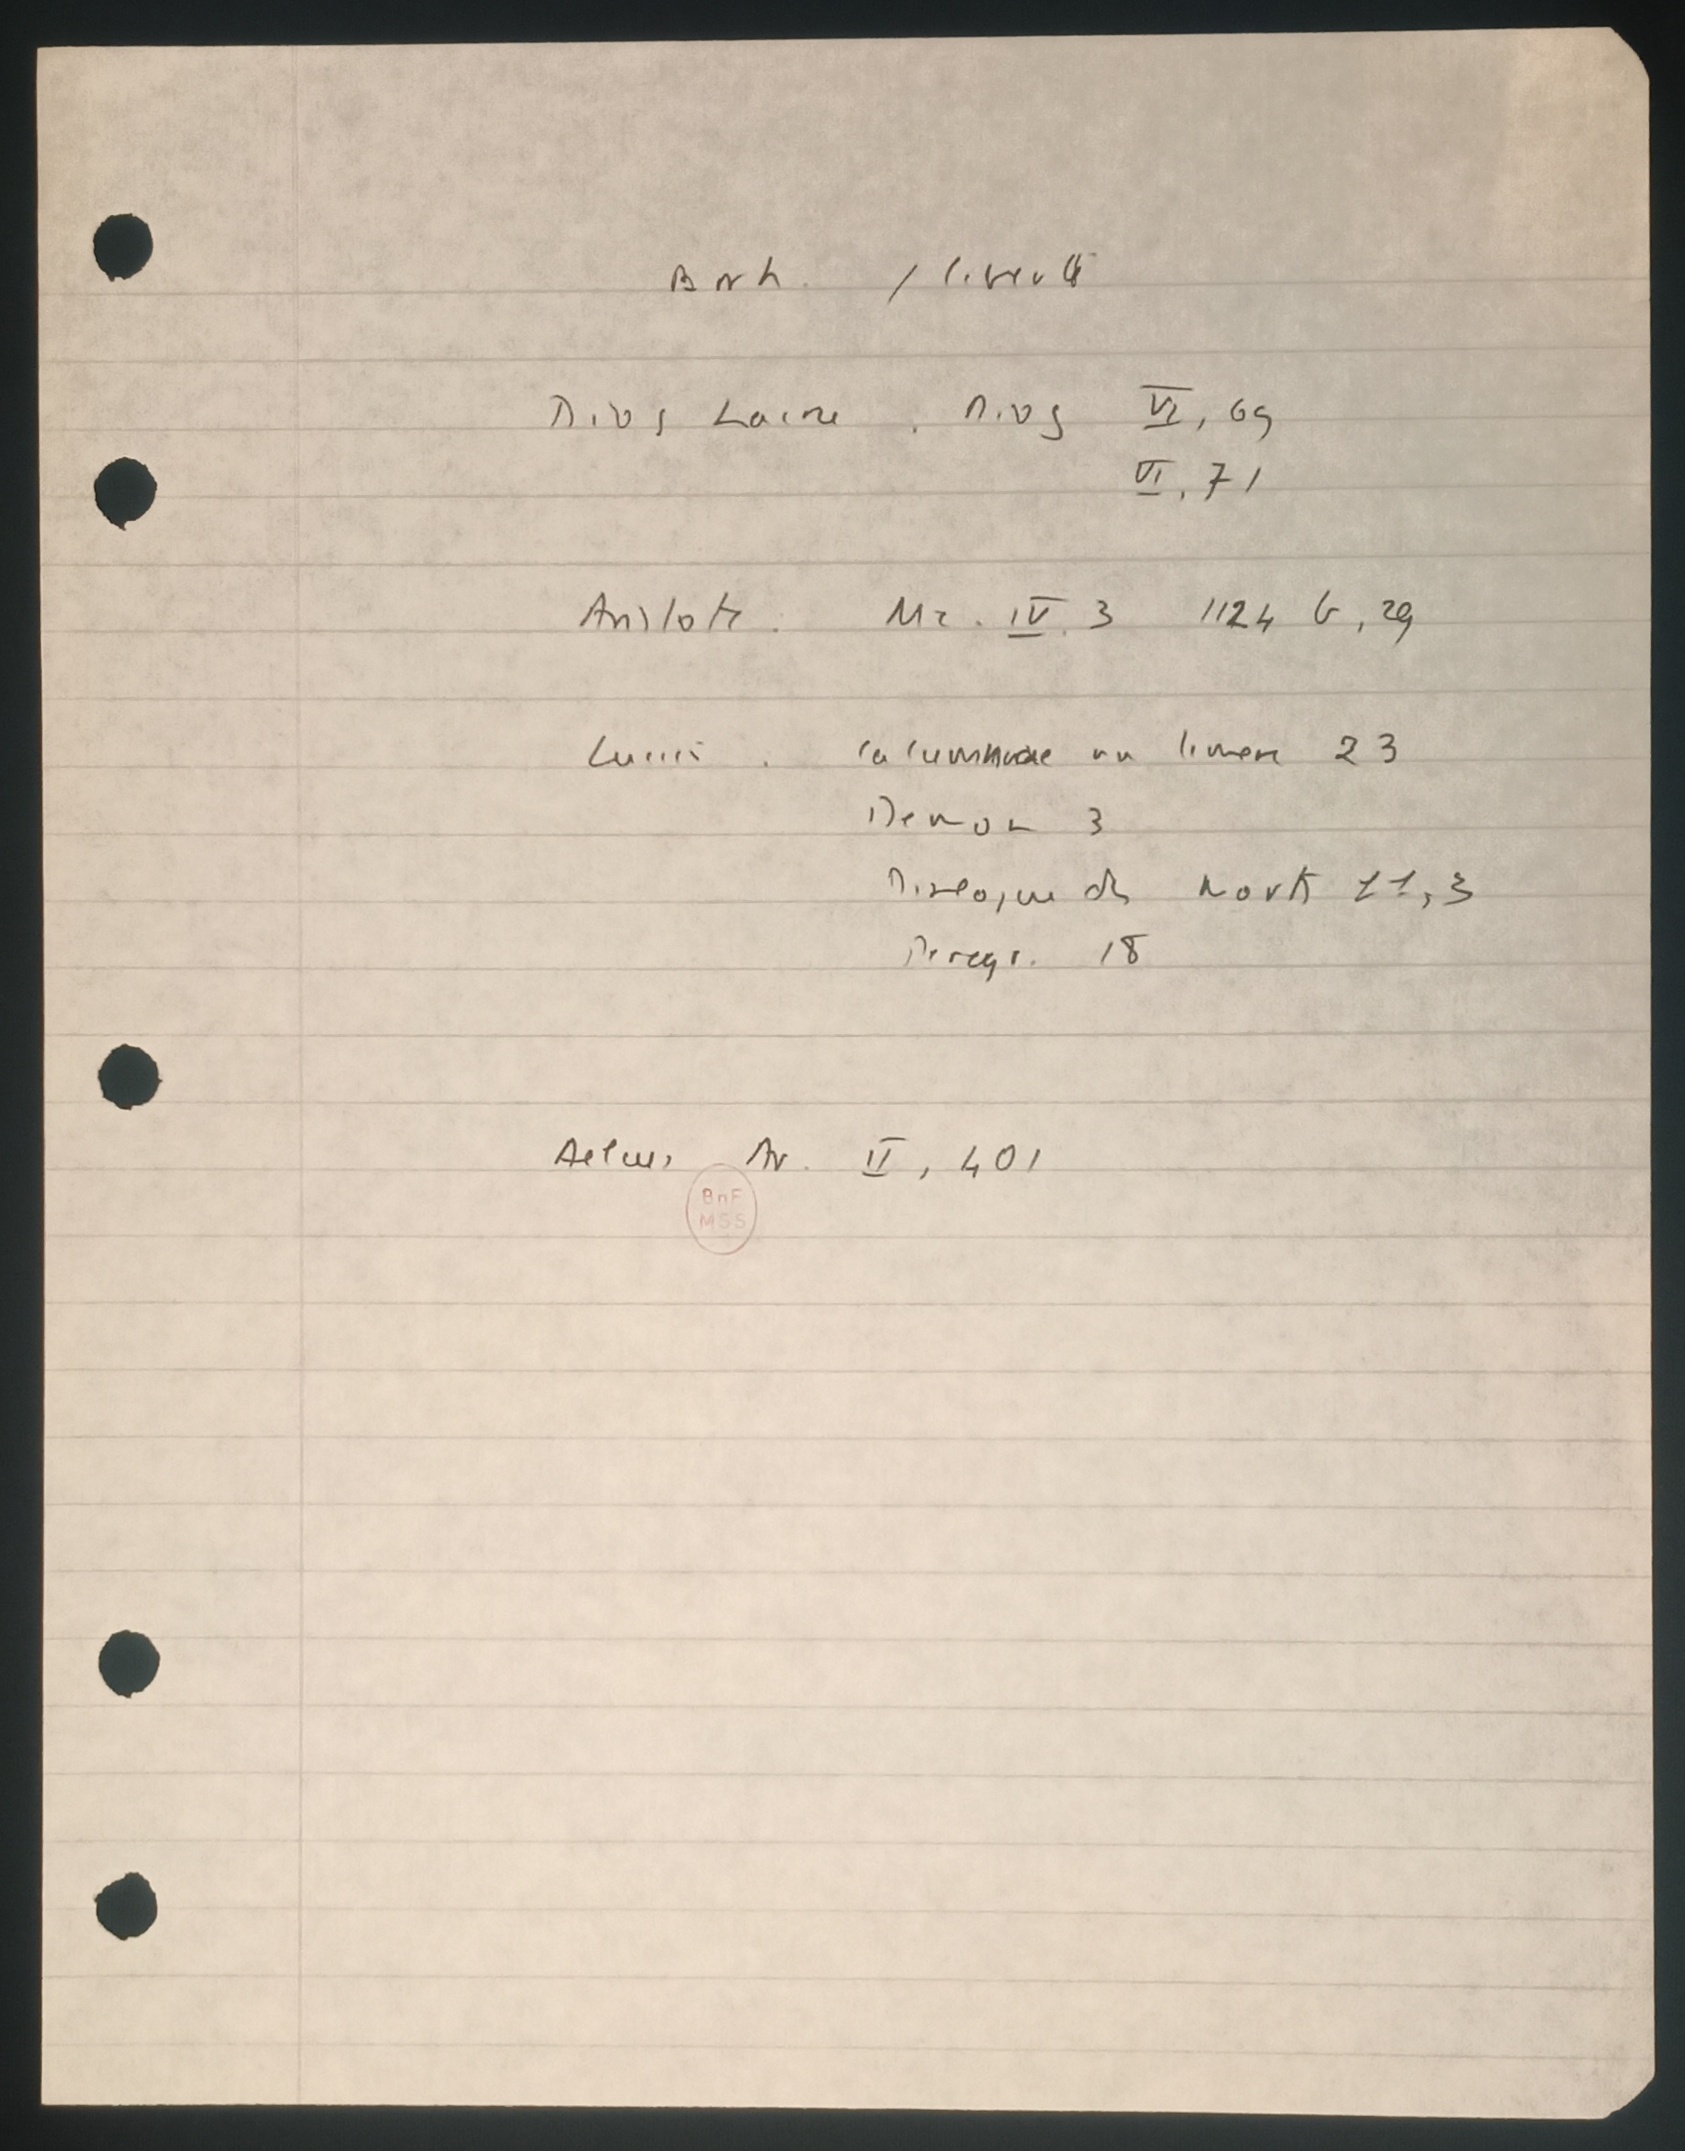 Parrh. / liberté
Diog Laerce. Diog VI, 69
VI, 71
Aristote. Mc. IV. 3 1124 b, 29
Lucien. Calumniae 23
Demon 3
Dialogue des morts 11, 3
Peregr. 18
Aelius Ar. II, 401
BnF
MSS